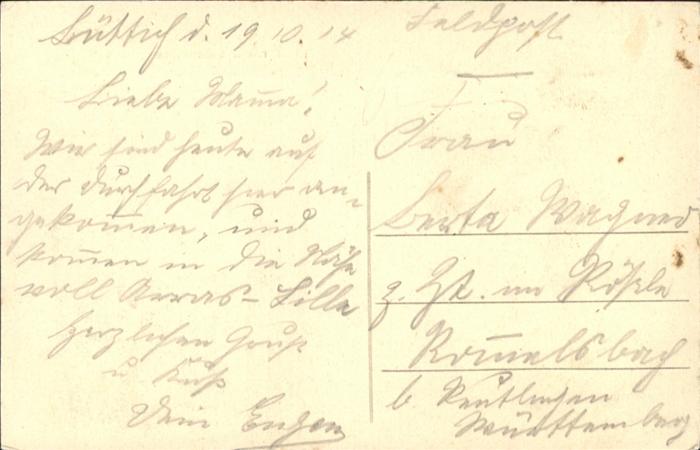 Lüttich d. 19.10.14
Liebe Mama!
Wir sind heute auf
der Durchfahrt hier an-
gekommen, und
kommen in die Nähe
voll Arras - Lille
Herzlichen Gruß
u Kuß
Dein Eugen
Feldpost
Frau
Berta Wagner
z. Zt. im Rößle
Rommelsbach
b Reutlingen
Württemberg